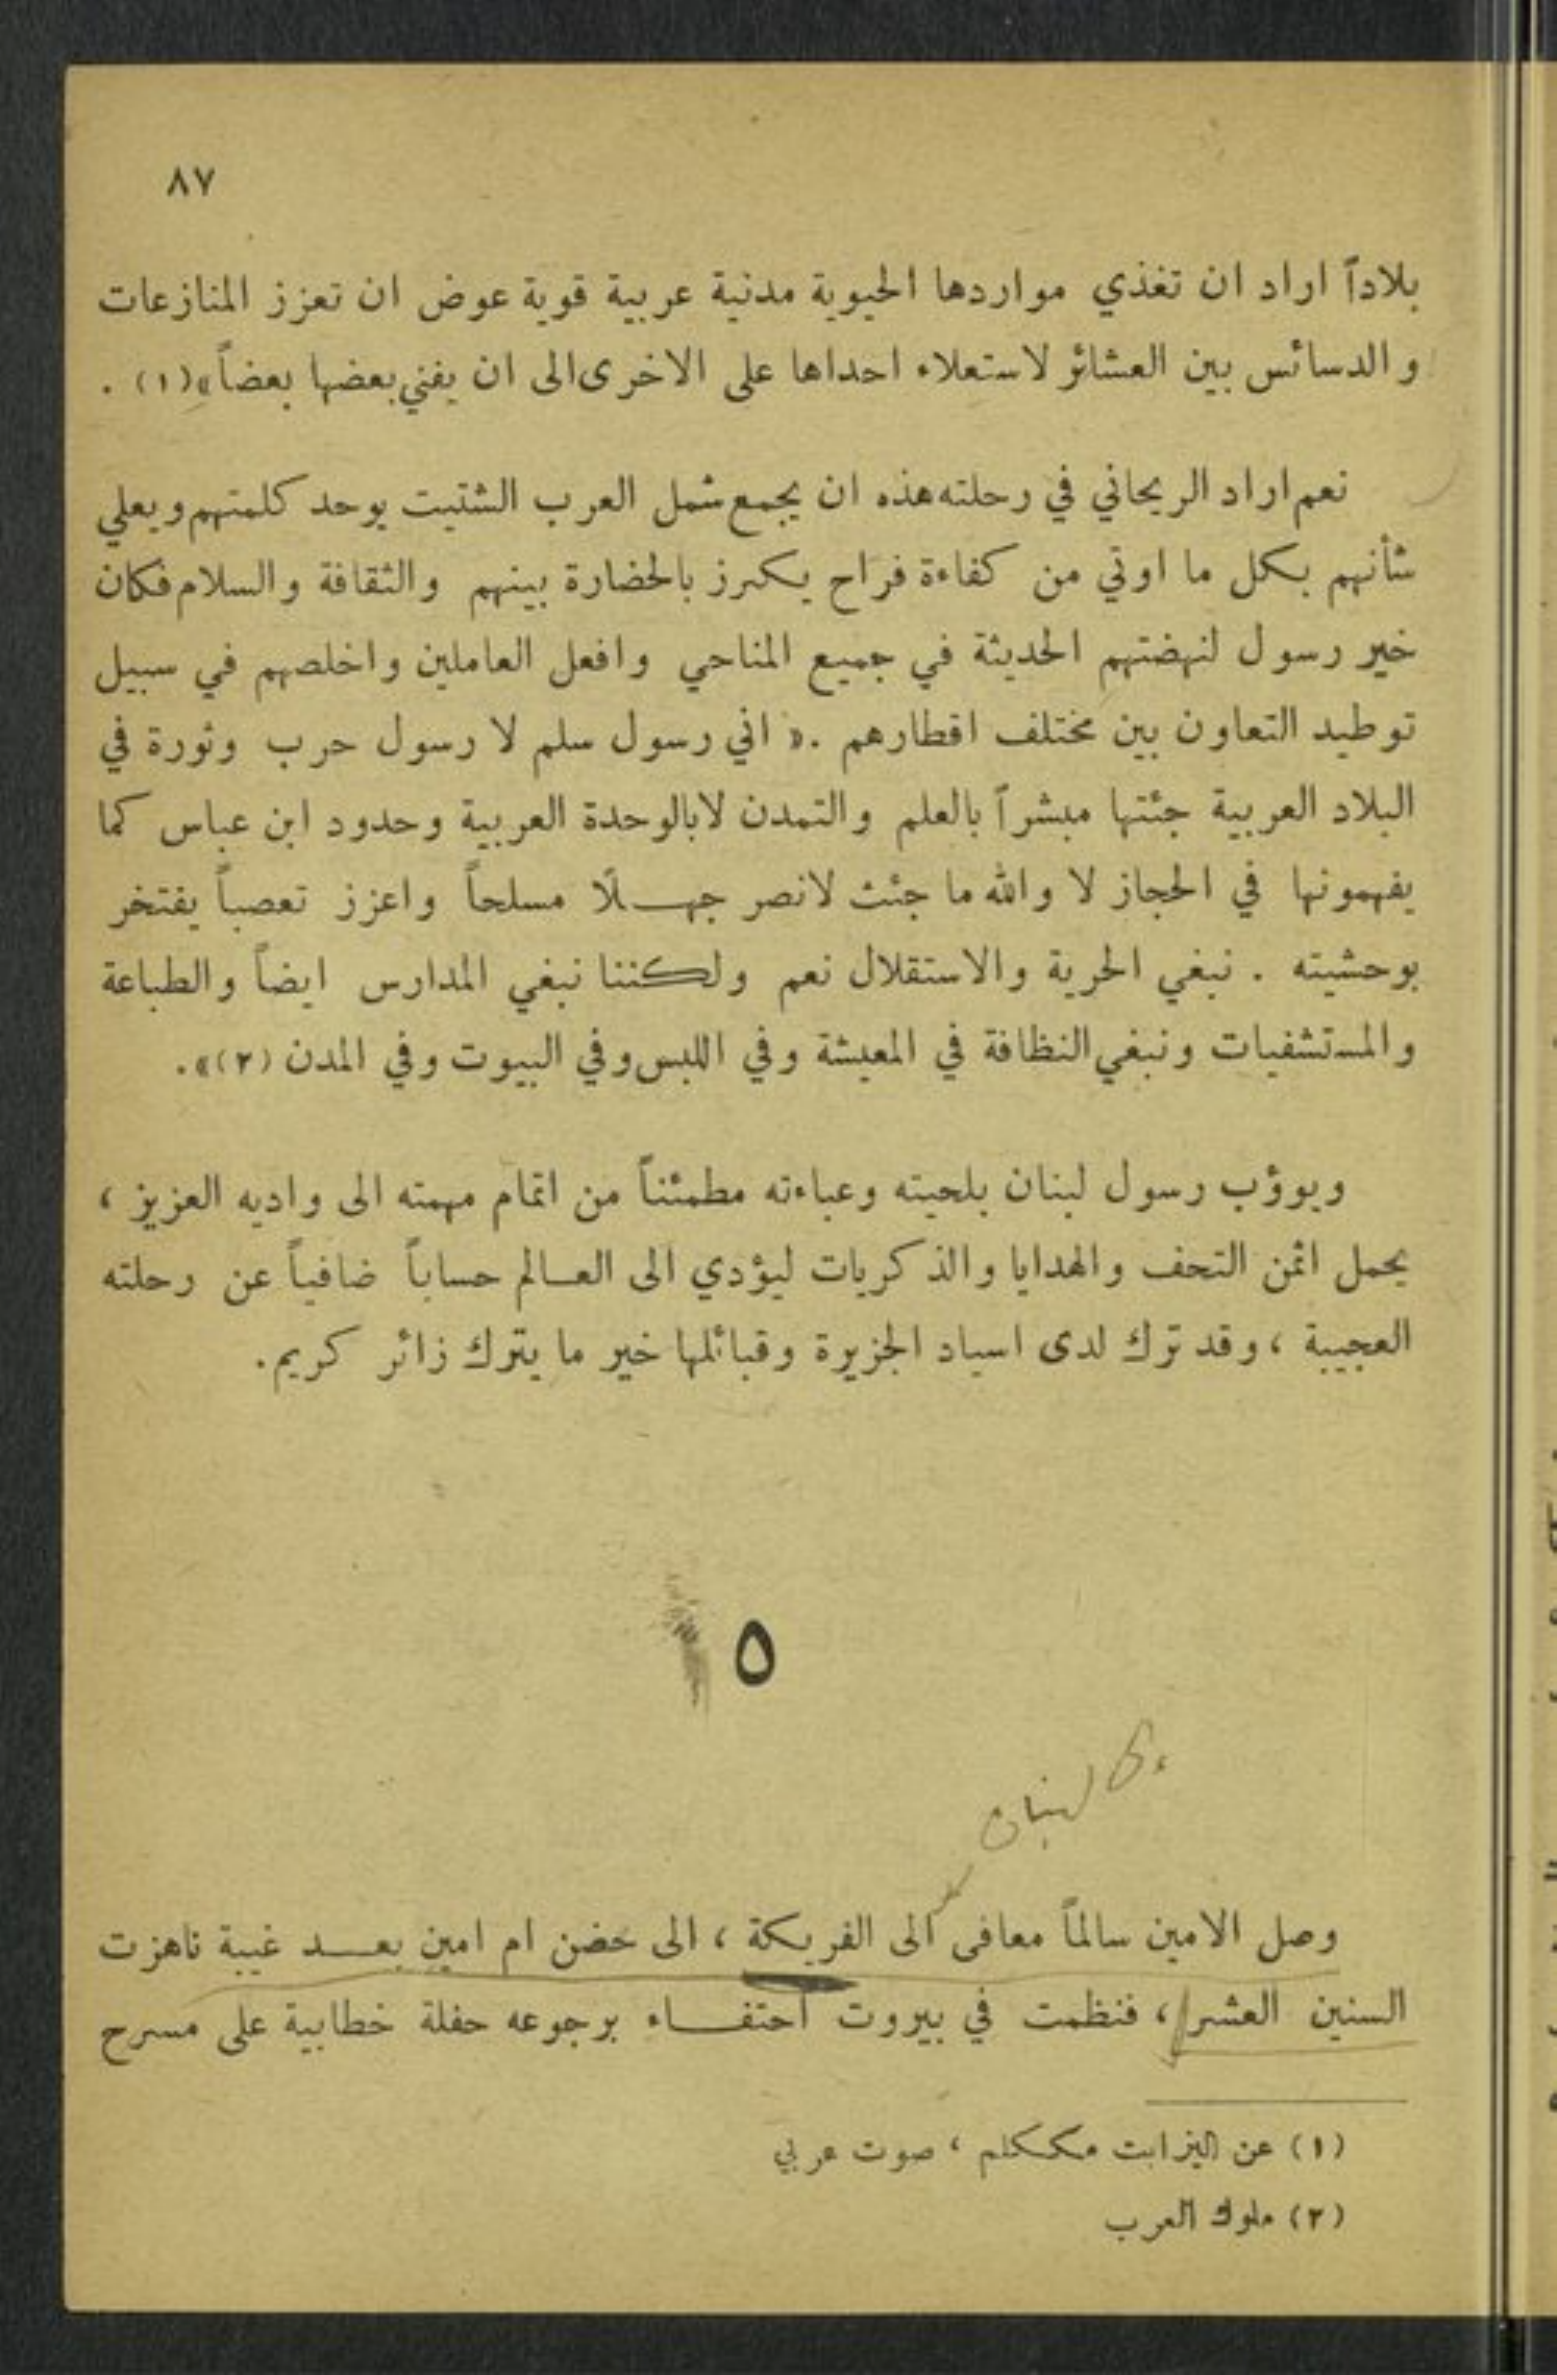 ٨٧
بلاداً اراد ان تغذي مواردها الحيوية مدنية عربية قوية عوض ان تعزز المنازعات
والدسائس بين العشائر لاستعلاء احداها على الاخرى الى ان يفني بعضها بعضاً»(١) .
نعم اراد الريحاني في رحلته هذه ان يجمع شمل العرب الشتيت يوحد كلمتهم ويعلي
شأنهم بكل ما اوتي من كفاءة فراح يكرز بالحضارة بينهم والثقافة والسلام فكان
خير رسول لنهضتهم الحديثة في جميع المناحي وافعل العاملين واخلصهم في سبيل
توطيد التعاون بين مختلف اقطارهم .« اني رسول سلم لا رسول حرب وثورة في
البلاد العربية جئتها مبشراً بالعلم والتمدن لا بالوحدة العربية وحدود ابن عباس كما
يفهمونها في الحجاز لا والله ما جئت لانصر جهـلًا مسلحاً واعزز تعصباً يفتخر
بوحشيته . نبغي الحرية والاستقلال نعم ولكننا نبغي المدارس ايضاً والطباعة
والمستشفيات ونبغي النظافة في المعيشة وفي اللبس وفي البيوت وفي المدن (٢)».
ويوؤب رسول لبنان بلحيته وعباءته مطمئناً من اتمام مهمته الى واديه العزيز ،
يحمل اثمن التحف والهدايا والذكريات ليؤدي الى العـالم حساباً ضافياً عن رحلته
العجيبة ، وقد ترك لدى اسياد الجزيرة وقبائلها خير ما يترك زائر كريم.
٥
لبنان
وصل الامين سالماً معافى الى الفريكة ، الى حضن ام امين بعـــد غيبة ناهزت
السنين العشر ، فنظمت في بيروت احتفـــاء برجوعه حفلة خطابية على مسرح
(١) عن اليزابت مككلم ، صوت عربي
(٢) ملوك العرب